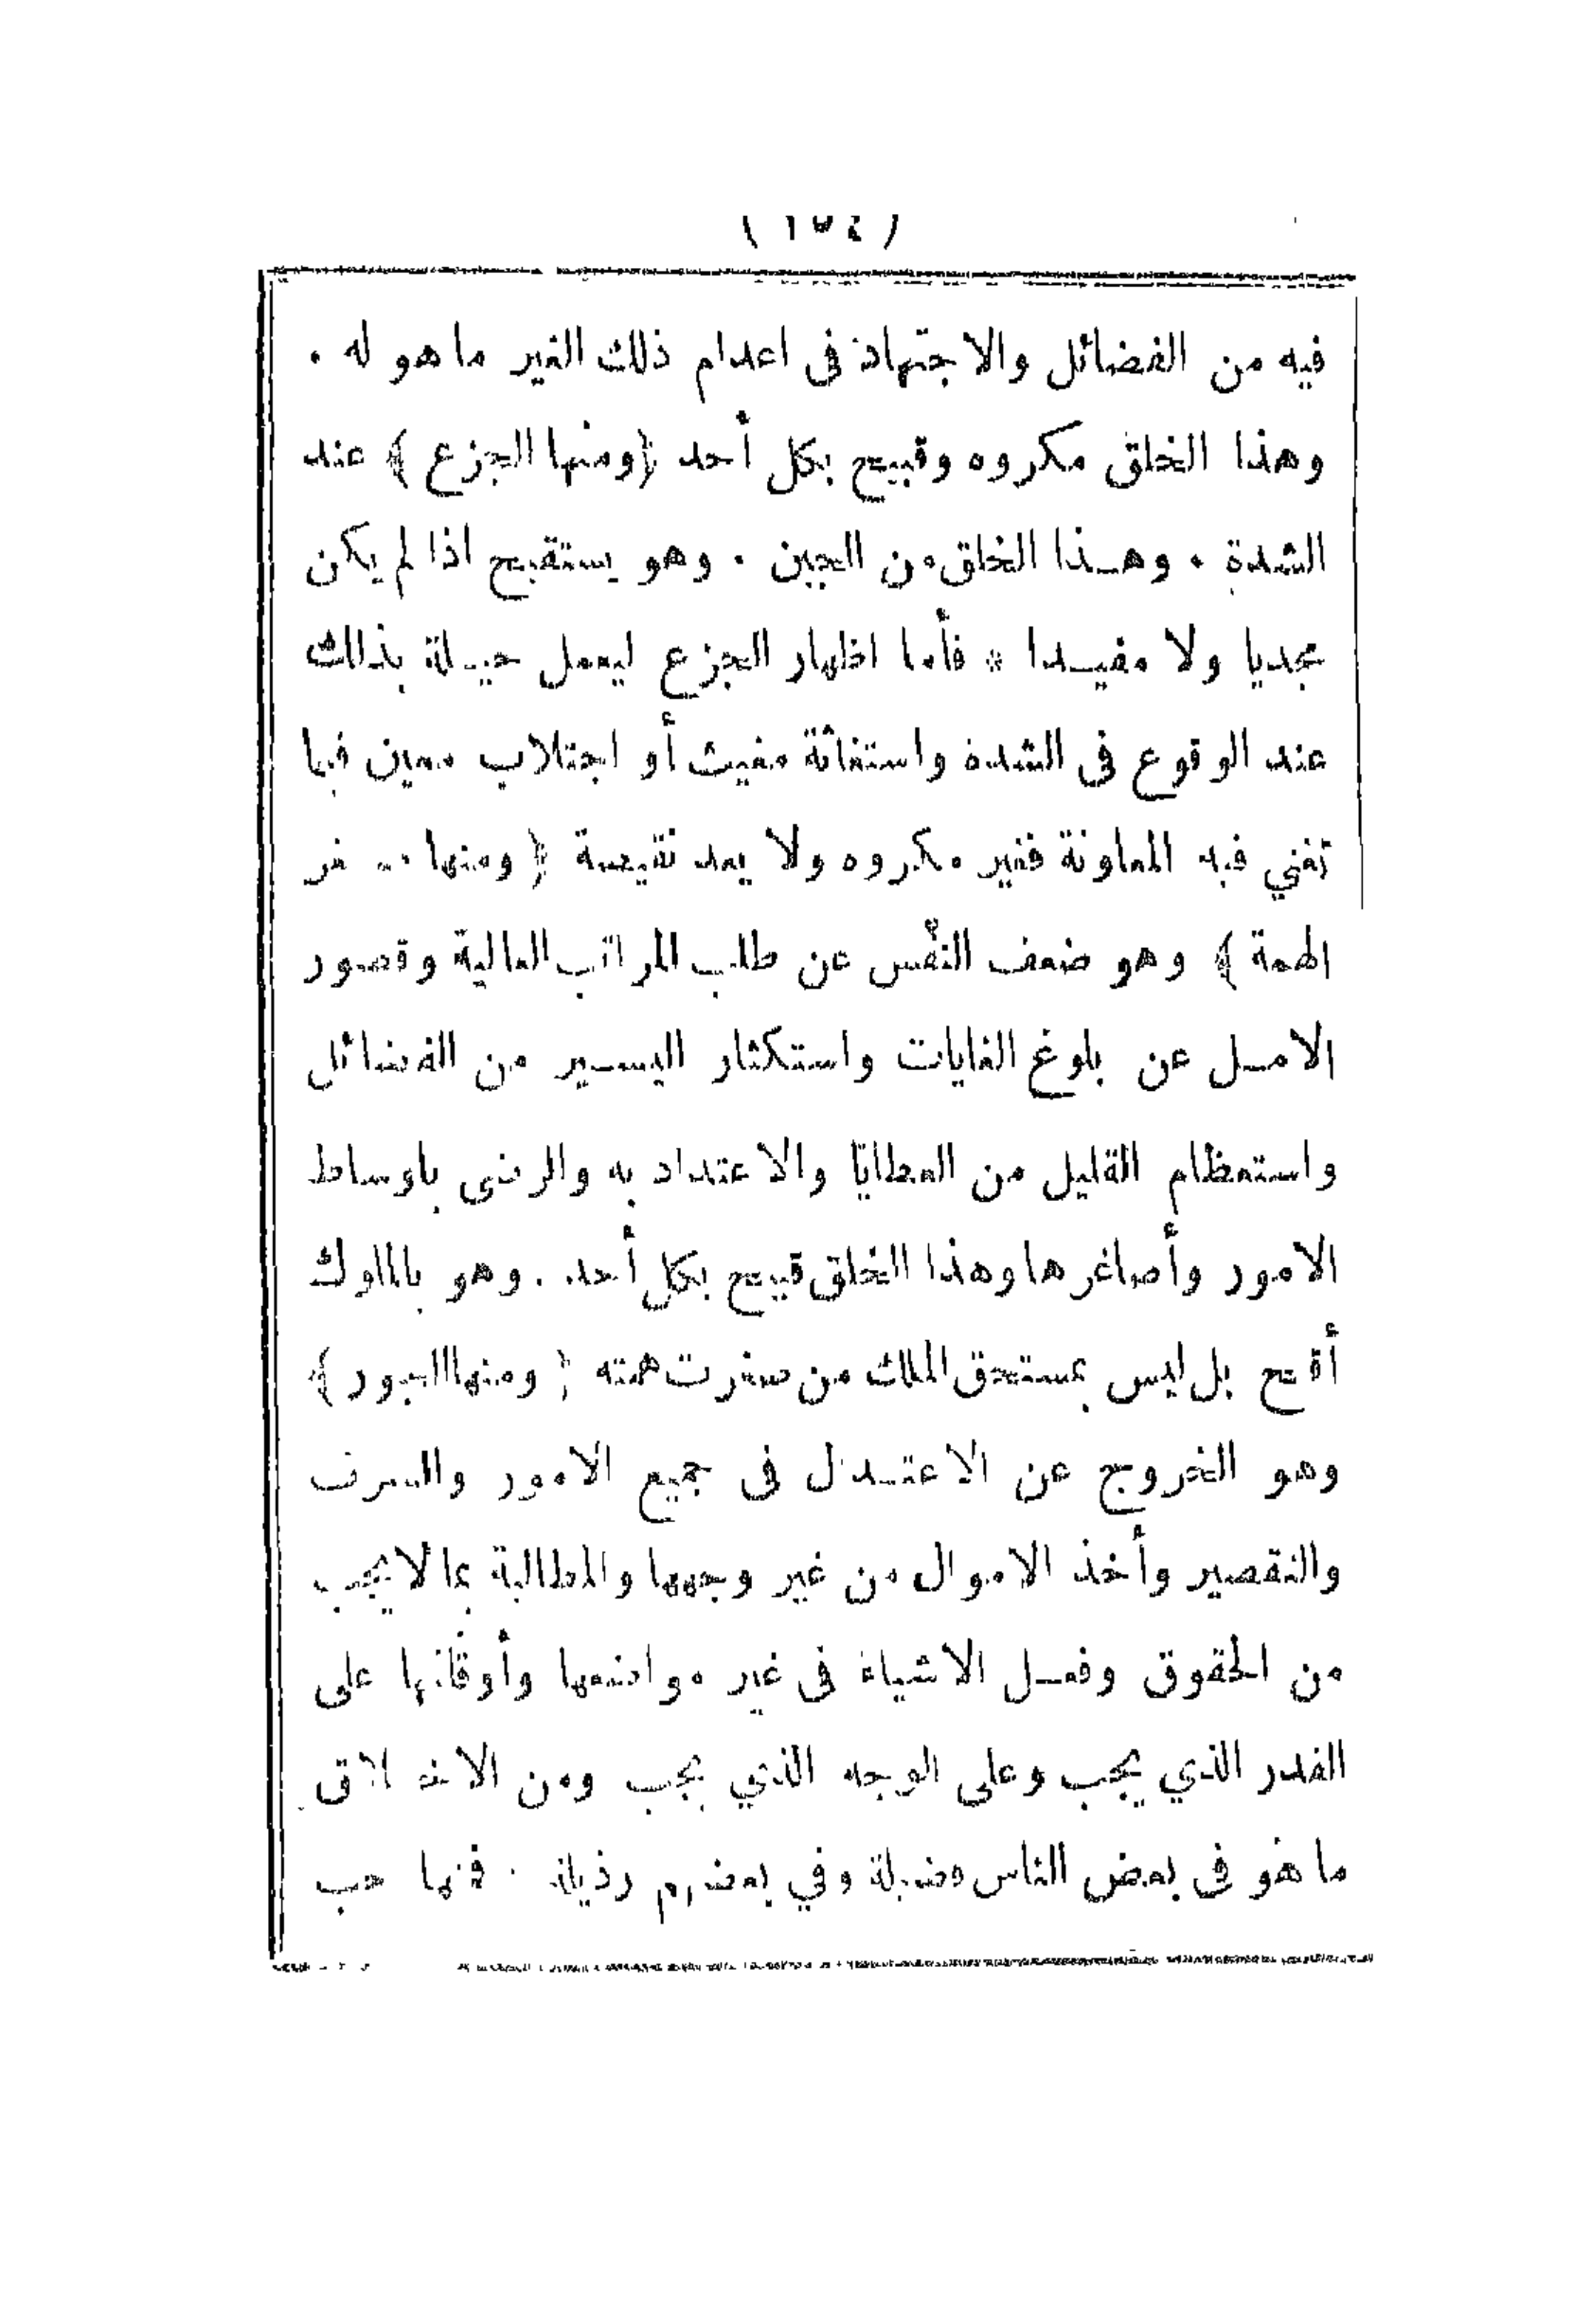 فيه من الفضائل والاجتهاد فى اعدام ذلك الغير ما هو له .
وهذا الخلق مكروه وقبيح بكل أحد ﴿ومنها الجزع﴾ عند
الشدة . وهذا الخلق من الجبن . وهو يستقبح اذا لم يكن
مجديا ولا مفيدا * فأما اظهار الجزع ليعمل حيلة بذلك
عند الوقوع فى الشدة واستغاثة مغيث أو اجتلاب معين فيما
تغني فيه المعاونة فغير مكروه ولا يعد نقيصة ﴿ومنها صغر
الهمة﴾ وهو ضعف النفس عن طلب المراتب العالية وقصور
الامل عن بلوغ الغايات واستكثار اليسير من الفضائل
واستعظام القليل من العطايا والاعتداد به والرضى باوساط
الامور وأصاغرها وهذا الخلق قبيح بكل أحد . وهو بالملوك
أقبح بل ليس بمستحق الملك من صغرت همته ﴿ومنها الجور﴾
وهو الخروج عن الاعتدال فى جميع الامور والسرف
والتقصير وأخذ الاموال من غير وجهها والمطالبة بما لا يجب
من الحقوق وفعل الاشياء فى غير مواضعها وأوقاتها على
القدر الذي يجب وعلى الوجه الذي يجب ومن الاخلاق
ما هو فى بعض الناس فضيلة وفي بعضهم رذيلة . فمنها حب